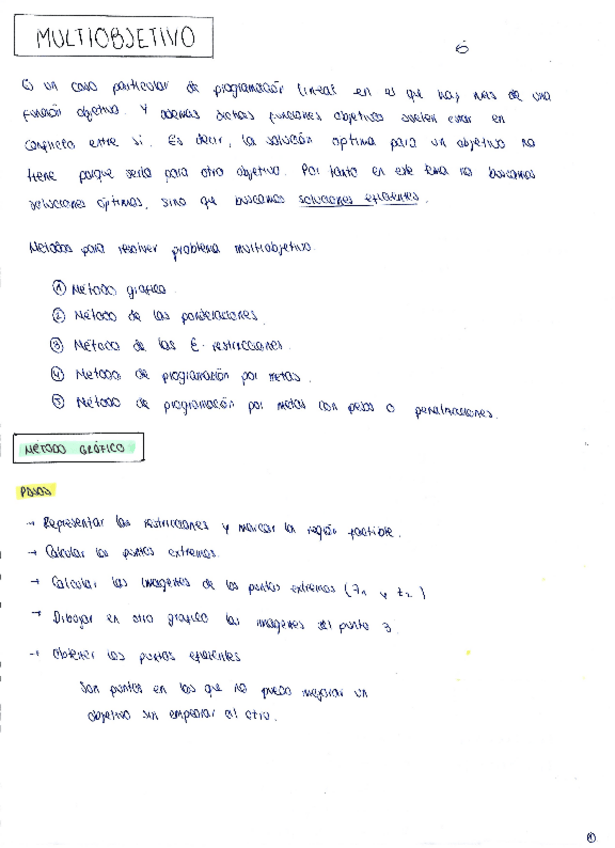 MULTIOBJETIVO
6
Es un caso particular de programación lineal en el que hay más de una
función objetivo. Y además dichas funciones objetivos suelen estar en
conflicto entre si. Es decir, la solución optima para un objetivo no
tiene porque serla para otro objetivo. Por tanto en este tema no buscamos
soluciones óptimas, sino que buscamos soluciones eficientes.
Metodos para resolver problema multiobjetivo.
① Método grafico.
② Método de las ponderaciones.
③ Método de las E-restricciones.
④ Metodo de programación por metas.
⑤ Método de programación por metas con pesos o penalizaciones.
MÉTODO GRÁFICO
PASOS
→ Representar las restricciones y marcar la región factible.
→ Calcular los puntos extremos.
→ Calcular las imagenes de los puntos extremos (z1 y z2)
→ Dibujar en otro grafico las imagenes del punto 3.
→ Obtener los puntos eficientes
Son puntos en los que no puedo mejorar un
objetivo sin empeorar el otro.
①